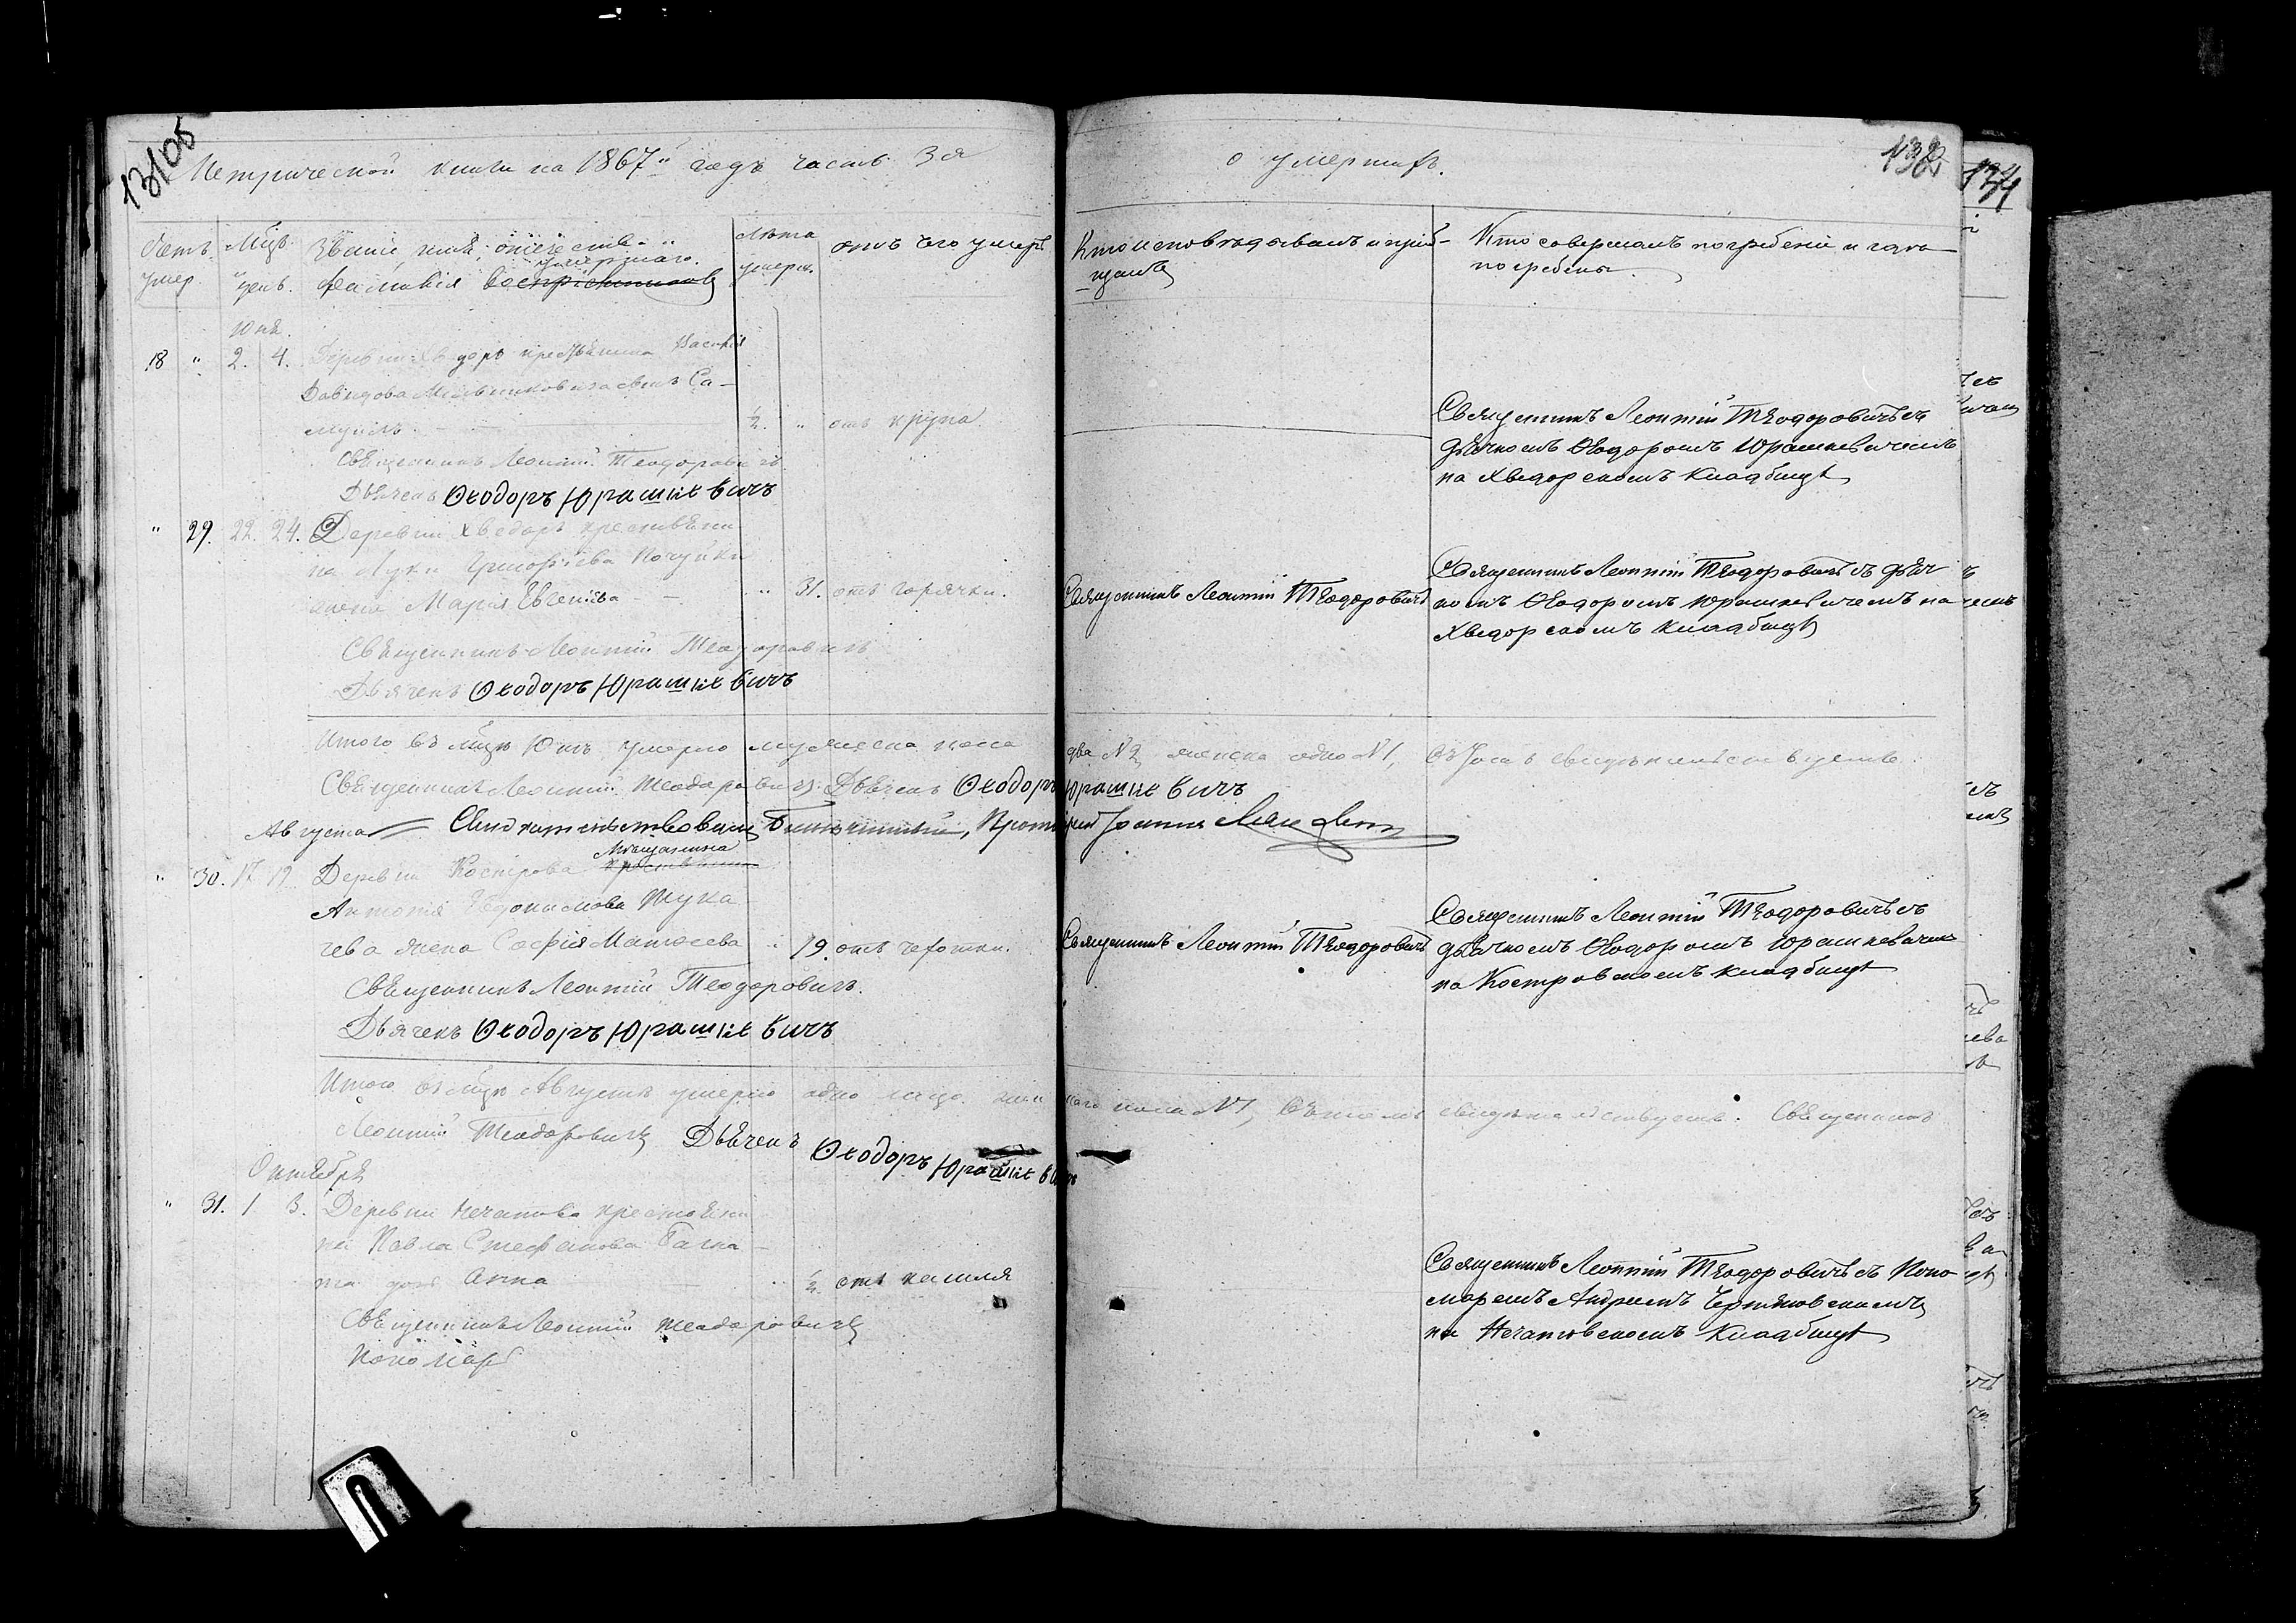 13105
Метрической книги на 1867й годъ часть 3я
о умершихъ.
134
Счетъ умер.
Мцъ день.
Званіе, имя, отчество и фамилія умершаго. воспріемниковъ
Лѣта умерш.
отъ чего умеръ
Кто исповѣдывалъ и пріобщалъ
Кто совершалъ погребеніе и гдѣ погребены.
Юня.
18 " 2. 4. Деревни Хведоръ крестьянина Василія
Давидова сынъ Са-
муилъ. ½. " отъ крупа.
Священникъ Леонтій Теодоровичъ
Дьячекъ Ѳеодоръ Юрашкевичъ
Священникъ Леонтій Теодоровичъ съ
дьячкомъ Ѳеодоромъ Юрашкевичемъ
на Хведорскомъ кладбищѣ
" 29. 22. 24. Деревни Хведоръ крестьяни-
на Луки Григорьева
жена Марія Евгеніева " 31. отъ горячки.
Священникъ Леонтій Теодоровичъ
Дьячекъ Ѳеодоръ Юрашкевичъ
Священникъ Леонтій Теодоровичъ
Священникъ Леонтій Теодоровичъ съ дьяч-
комъ Ѳеодоромъ Юрашкевичемъ на
Хведорскомъ кладбищѣ
Итого въ мцѣ Юнѣ умерло мужеска пола два №2, женска одно №1, въ томъ свидѣтельствуемъ.
Священникъ Леонтій Теодоровичъ. Дьячекъ Ѳеодоръ Юрашкевичъ
Свидѣтельствовалъ Благочинный, Протоіерей Іоаннъ
Августа
" 30. 17 19 Деревни Кострова мѣщанина крестьянина
Антонія Евдокимова Шука-
чева жена Софія Матѳеева " 19. отъ чехотки.
Священникъ Леонтій Теодоровичъ.
Дьячекъ Ѳеодоръ Юрашкевичъ
Священникъ Леонтій Теодоровичъ
Священникъ Леонтій Теодоровичъ съ
дьячкомъ Ѳеодоромъ Юрашкевичемъ
на Костровскомъ кладбищѣ
Итого въ мцѣ Августѣ умерло одно лице женскаго пола №1, въ томъ свидѣтельствуемъ. Священникъ
Леонтій Теодоровичъ Дьячекъ Ѳеодоръ Юрашкевичъ
Октября
" 31. 1 3. Деревни Нечатова крестьяни-
на Павла Стефанова
дочь Анна " ½ отъ кашля
Священникъ Леонтій Теодоровичъ
Пономарь
Священникъ Леонтій Теодоровичъ съ Поно-
маремъ Андреемъ
на Нечатовскомъ кладбищѣ